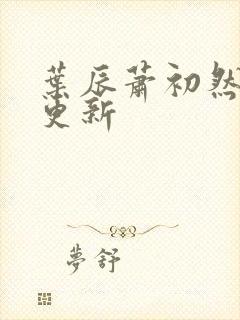 葉辰蕭初然
更新
夢舒